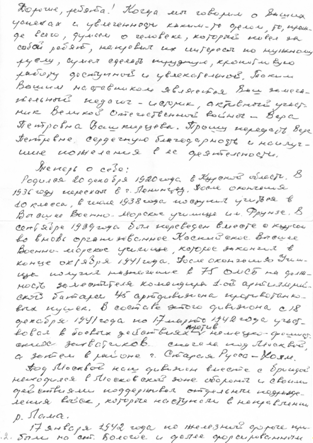 Дорогие, ребята! Когда мы говорим о Ваших
успехах и увлеченности каким-то делом, то, преж-
де всего, думаем о человеке, который повел за
собой ребят, направил их интерес по нужному
руслу, сумел сделать трудную, кропотливую
работу доступной и увлекательной. Таким
Вашим наставником является Ваш замеча-
тельный педагог - историк, активный участ-
ник Великой Отечественной войны - Вера
Петровна Вашкирцева. Прошу передать Вере
Петровне сердечную благодарность и наилуч-
шие пожелания в ее деятельности.
Теперь о себе:
Родился 20 декабря 1920 года в Курской области. В
1936 году переехал в г. Ленинград. После окончания
10 класса, в июле 1938 года поступил учиться в
Высшее Военно-Морское училище им. Фрунзе. В
сентябре 1939 года был переведен вместе с курсом
во вновь организованное Каспийское Высшее
Военно-морское училище, которое закончил в
конце октября 1941 года. После окончания учили-
ща получил назначение в 75 ОМСБ на долж-
ность заместителя командира 1-ой артиллерий-
ской батареи 45 артдивизиона противотанко-
вых пушек. В составе этого дивизиона с 18
декабря 1941 года по 17 марта 1942 года участ-
вовал в боевых действиях против немецко-фашист-
ских захватчиков сначала под Москвой,
а затем в районе г. Старая Русса - Холм.
Под Москвой наш дивизион вместе с бригадой
находился в Московской зоне обороны и своими
действиями поддерживал стрелковые подразде-
ления войск, которые наступали в направлении
р. Лама.
17 января 1942 года по железной дороге при-
были на ст. Бологое и далее форсированным
2.